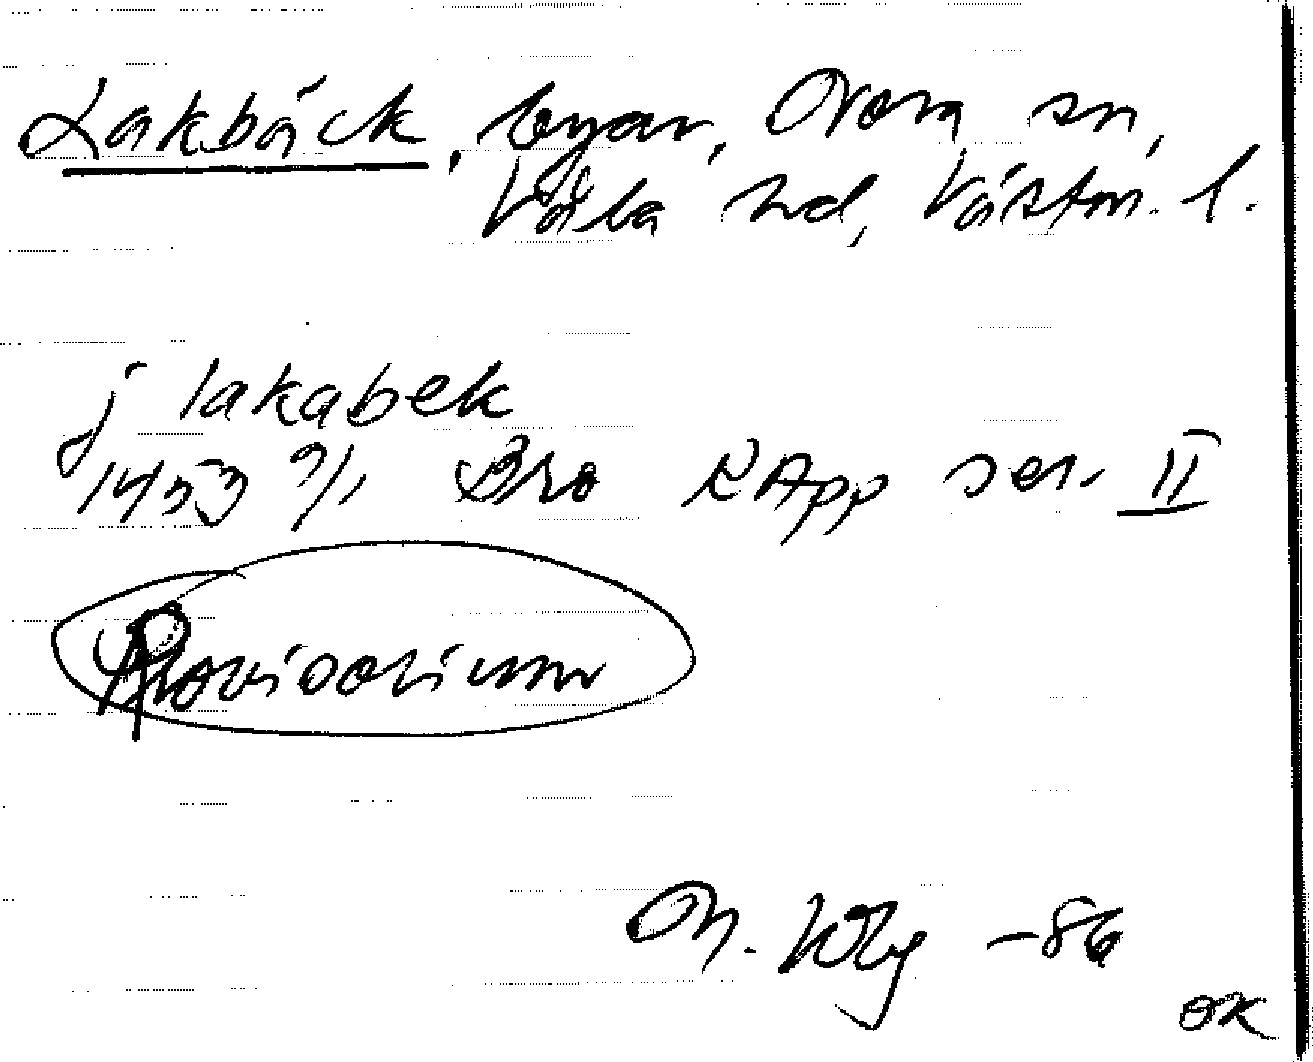 Lakbäck, byar, Nora sn,
Våla hd, Västm. l.
j lakabek
1453 9/1 Bro RApp ser. II
Provisorium
M. Wbg -86
OK